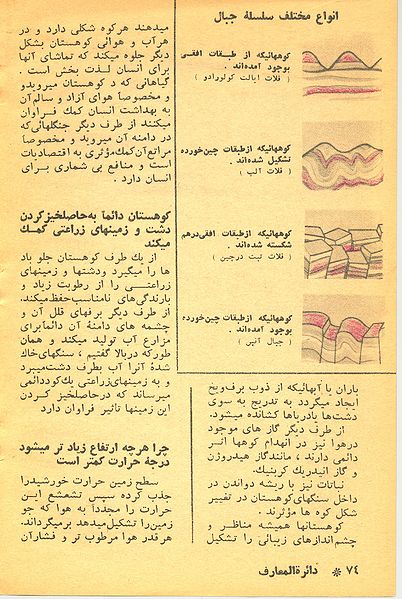 انواع مختلف سلسلهٔ جبال
کوههائیکه از طبقات افقی
بوجود آمده‌اند.
( فلات ایالت کولورادو )
کوههائیکه ازطبقات چین‌خورده
تشکیل شده‌اند.
( فلات آلپ )
کوههائیکه ازطبقات افقی‌درهم
شکسته شده‌اند.
( فلات تبت درچین )
کوههائیکه ازطبقات چین‌خورده
بوجود آمده‌اند.
( جبال آلپس )
باران یا آبهائیکه از ذوب برف‌ویخ
ایجاد میگردد به تدریج به سوی
دشت‌ها یادریاها کشانده میشود.
از طرف دیگر گاز های موجود
درهوا نیز در انهدام کوهها اثر
دائمی دارند، مانندگاز هیدروژن
و گاز انیدریك کربنیك.
نباتات نیز با ریشه دواندن در
داخل سنگهای‌کوهستان در تغییر
شکل کوه ها مؤثرند.
کوهستانها همیشه مناظر و
چشم‌اندازهای زیبائی را تشکیل
میدهند هرکوه شکلی دارد و در
هرآب و هوائی کوهستان بشکل
دیگر جلوه میکند که تماشای آنها
برای انسان لذت بخش است.
گیاهانی که در کوهستان میرویدو
و مخصوصا هوای آزاد و سالم‌آن
به بهداشت انسان کمك فراوان
میکنند از طرف دیگر جنگلهائی‌که
در دامنه آن میروید و مخصوصا
مراتع‌آن‌کمك‌مؤثری به اقتصادیات
است و منافع بی شماری برای
انسان دارد.
کوهستان دائما به‌حاصلخیزکردن
دشت و زمینهای زراعتی کمك
میکند
از یك طرف کوهستان جلو باد
ها را میگیرد ودشتها و زمینهای
زراعتی را از رطوبت زیاد و
بارندگی‌های نامناسب‌حفظ‌میکند.
از طرف دیگر برفهای قلل آن و
چشمه های دامنهٔ آن دائمابرای
مزارع آب تولید میکند و همان
طورکه دربالا گفتیم، سنگهای‌خاك
شدهٔ آنرا آب بطرف دشت‌میبرد
و به زمینهای‌زراعتی یك‌کوددائمی
میرساند که درحاصلخیز کردن
این زمینها تاثیر فراوان دارد
چرا هرچه ارتفاع زیاد تر میشود
درجهٔ حرارت کمتر است
سطح زمین حرارت خورشیدرا
جذب کرده سپس تشعشع این
حرارت را مجددا به هوا که جو
زمین‌را تشکیل‌میدهد برمیگرداند.
هرقدر هوا مرطوب تر و فشارآن
۷۴ * دائرةالمعارف